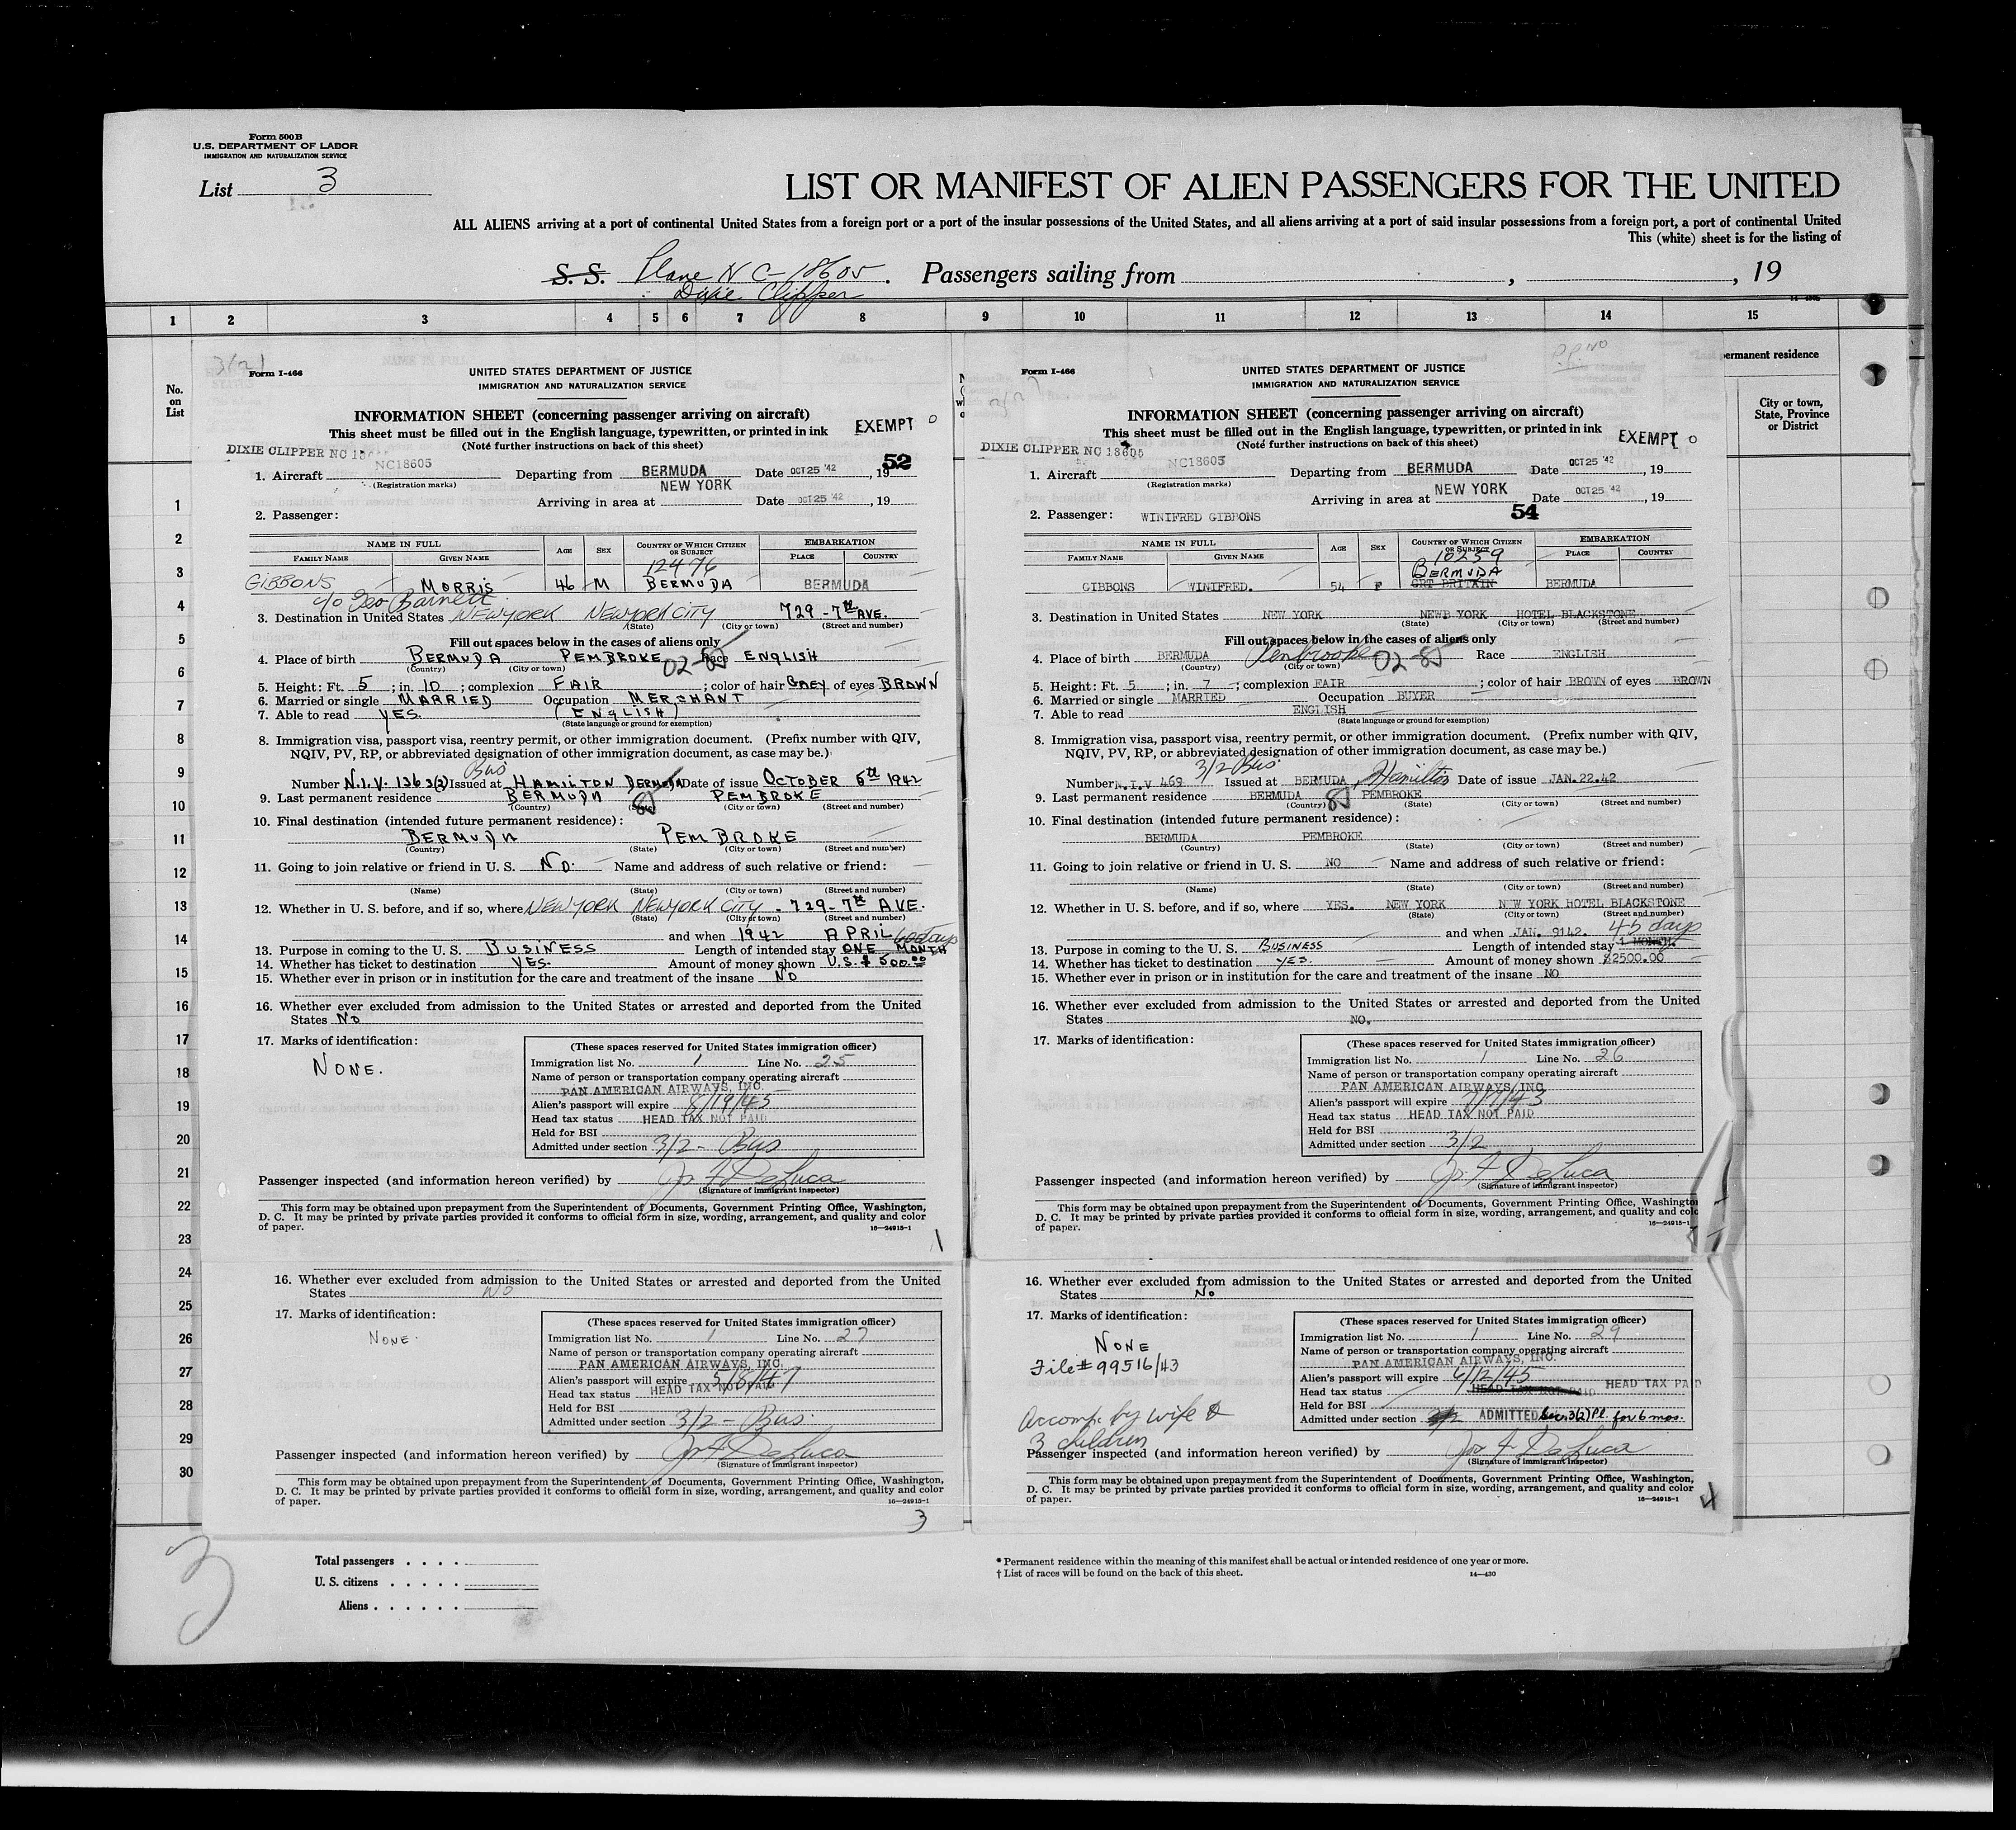 Form 500 B
U.S. DEPARTMENT OF LABOR
IMMIGRATION AND NATURALIZATION SERVICE
List 3
LIST OR MANIFEST OF ALIEN PASSENGERS FOR THE UNITED
ALL ALIENS arriving at a port of continental United States from a foreign port or a port of the insular possessions of the United States, and all aliens arriving at a port of said insular possessions from a foreign port, a port of continental United
This (white) sheet is for the listing of
S. S. Plane NC-18605. Passengers sailing from , , 19
Dixie Clipper
1 2 3 4 5 6 7 8 9 10 11 12 13 14 15
No. on List
ermanent residence
City or town, State, Province or District
1
2
3
4
5
6
7
8
9
10
11
12
13
14
15
16
17
18
19
20
21
22
23
24
25
26
27
28
29
30
3(2)
Form I-466
UNITED STATES DEPARTMENT OF JUSTICE
IMMIGRATION AND NATURALIZATION SERVICE
INFORMATION SHEET (concerning passenger arriving on aircraft)
EXEMPT 0
This sheet must be filled out in the English language, typewritten, or printed in ink
(Note further instructions on back of this sheet)
DIXIE CLIPPER NC
52
1. Aircraft NC18605 Departing from BERMUDA Date OCT 25 '42, 19
(Registration marks)
Arriving in area at NEW YORK Date OCT 25 '42, 19
2. Passenger:
NAME IN FULL AGE SEX COUNTRY OF WHICH CITIZEN OR SUBJECT EMBARKATION
FAMILY NAME GIVEN NAME PLACE COUNTRY
12476
GIBBONS MORRIS 46 M BERMUDA BERMUDA
c/o Geo Barnett
3. Destination in United States NEW YORK NEW YORK CITY 729 - 7th AVE.
(State) (City or town) (Street and number)
Fill out spaces below in the cases of aliens only
4. Place of birth BERMUDA PEMBROKE 02-85 Race ENGLISH
(Country) (City or town)
5. Height: Ft. 5; in. 10; complexion FAIR; color of hair GREY of eyes BROWN
6. Married or single MARRIED Occupation MERCHANT
7. Able to read YES. (ENGLISH)
(State language or ground for exemption)
8. Immigration visa, passport visa, reentry permit, or other immigration document. (Prefix number with QIV,
NQIV, PV, RP, or abbreviated designation of other immigration document, as case may be.)
Bus
Number N.I.V. 136 3(2) Issued at HAMILTON BERMUDA Date of issue OCTOBER 5th 1942
9. Last permanent residence BERMUDA 85 PEMBROKE
(Country) (State) (City or town) (Street and number)
10. Final destination (intended future permanent residence):
BERMUDA PEMBROKE
(Country) (State) (City or town) (Street and number)
11. Going to join relative or friend in U. S. NO. Name and address of such relative or friend:
(Name) (State) (City or town) (Street and number)
12. Whether in U. S. before, and if so, where NEW YORK NEW YORK CITY. 729 - 7th AVE.
(State) (City or town) (Street and number)
and when 1942 APRIL 60 days
13. Purpose in coming to the U. S. BUSINESS Length of intended stay ONE MONTH
14. Whether has ticket to destination YES. Amount of money shown U.S. $ 500.00
15. Whether ever in prison or in institution for the care and treatment of the insane NO
16. Whether ever excluded from admission to the United States or arrested and deported from the United
States NO
17. Marks of identification:
NONE.
(These spaces reserved for United States immigration officer)
Immigration list No. 1 Line No. 25
Name of person or transportation company operating aircraft
PAN AMERICAN AIRWAYS, INC.
Alien's passport will expire 8/19/45
Head tax status HEAD TAX NOT PAID
Held for BSI
Admitted under section 3/2 - Bus
Passenger inspected (and information hereon verified) by Jos F DeLuca
(Signature of immigrant inspector)
This form may be obtained upon prepayment from the Superintendent of Documents, Government Printing Office, Washington,
D. C. It may be printed by private parties provided it conforms to official form in size, wording, arrangement, and quality and color
of paper.
16—24915-1
1
P.P. NO
Form I-466
UNITED STATES DEPARTMENT OF JUSTICE
IMMIGRATION AND NATURALIZATION SERVICE
INFORMATION SHEET (concerning passenger arriving on aircraft)
This sheet must be filled out in the English language, typewritten, or printed in ink
EXEMPT 0
(Note further instructions on back of this sheet)
DIXIE CLIPPER NC 18605
1. Aircraft NC18605 Departing from BERMUDA Date OCT 25 '42, 19
(Registration marks)
Arriving in area at NEW YORK Date OCT 25 '42, 19
2. Passenger: WINIFRED GIBBONS
54
NAME IN FULL AGE SEX COUNTRY OF WHICH CITIZEN OR SUBJECT EMBARKATION
FAMILY NAME GIVEN NAME PLACE COUNTRY
10259
BERMUDA
GIBBONS WINIFRED. 54 F GRT BRITAIN BERMUDA
3. Destination in United States NEW YORK NEWB YORK HOTEL BLACKSTONE
(State) (City or town) (Street and number)
Fill out spaces below in the cases of aliens only
4. Place of birth BERMUDA Pembrooke 02-85 Race ENGLISH
(Country) (City or town)
5. Height: Ft. 5; in. 7; complexion FAIR; color of hair BROWN of eyes BROWN
6. Married or single MARRIED Occupation BUYER
7. Able to read ENGLISH
(State language or ground for exemption)
8. Immigration visa, passport visa, reentry permit, or other immigration document. (Prefix number with QIV,
NQIV, PV, RP, or abbreviated designation of other immigration document, as case may be.)
3/2 Bus
Number N.I.V 469 Issued at BERMUDA, Hamilton Date of issue JAN.22.42
9. Last permanent residence BERMUDA 85 PEMBROKE
(Country) (State) (City or town) (Street and number)
10. Final destination (intended future permanent residence):
BERMUDA PEMBROKE
(Country) (State) (City or town) (Street and number)
11. Going to join relative or friend in U. S. NO Name and address of such relative or friend:
(Name) (State) (City or town) (Street and number)
12. Whether in U. S. before, and if so, where YES. NEW YORK NEW YORK HOTEL BLACKSTONE
(State) (City or town) (Street and number)
and when JAN. 9142. 45 days
13. Purpose in coming to the U. S. BUSINESS Length of intended stay 1 MONTH.
14. Whether has ticket to destination YES. Amount of money shown $2500.00
15. Whether ever in prison or in institution for the care and treatment of the insane NO
16. Whether ever excluded from admission to the United States or arrested and deported from the United
States NO.
17. Marks of identification:
(These spaces reserved for United States immigration officer)
Immigration list No. 1 Line No. 26
Name of person or transportation company operating aircraft
PAN AMERICAN AIRWAYS, INC
Alien's passport will expire 7/7/43
Head tax status HEAD TAX NOT PAID
Held for BSI
Admitted under section 3/2
Passenger inspected (and information hereon verified) by Jos F DeLuca
(Signature of immigrant inspector)
This form may be obtained upon prepayment from the Superintendent of Documents, Government Printing Office, Washingto
D. C. It may be printed by private parties provided it conforms to official form in size, wording, arrangement, and quality and colo
of paper.
16—24915-1
16. Whether ever excluded from admission to the United States or arrested and deported from the United
States NO
17. Marks of identification:
NONE.
(These spaces reserved for United States immigration officer)
Immigration list No. 1 Line No. 27
Name of person or transportation company operating aircraft
PAN AMERICAN AIRWAYS, INC.
Alien's passport will expire 5/8/47
Head tax status HEAD TAX NOT PAID
Held for BSI
Admitted under section 3/2 - Bus.
Passenger inspected (and information hereon verified) by Jos F DeLuca
(Signature of immigrant inspector)
This form may be obtained upon prepayment from the Superintendent of Documents, Government Printing Office, Washington,
D. C. It may be printed by private parties provided it conforms to official form in size, wording, arrangement, and quality and color
of paper.
16—24915-1
3
16. Whether ever excluded from admission to the United States or arrested and deported from the United
States No
17. Marks of identification:
NONE
File # 99516/43
Accomp. by wife &
3 children
(These spaces reserved for United States immigration officer)
Immigration list No. 1 Line No. 29
Name of person or transportation company operating aircraft
PAN AMERICAN AIRWAYS, INC.
Alien's passport will expire 6/12/45
Head tax status HEAD TAX NOT PAID HEAD TAX PAID
Held for BSI
Admitted under section 3/2 ADMITTED Sec. 3(2) Pl. for 6 mos.
Passenger inspected (and information hereon verified) by Jos F DeLuca
(Signature of immigrant inspector)
This form may be obtained upon prepayment from the Superintendent of Documents, Government Printing Office, Washington,
D. C. It may be printed by private parties provided it conforms to official form in size, wording, arrangement, and quality and color
of paper.
16—24915-1
4
3
Total passengers . . . .
U. S. citizens . . . . .
Aliens . . . . . .
* Permanent residence within the meaning of this manifest shall be actual or intended residence of one year or more.
† List of races will be found on the back of this sheet.
14—430